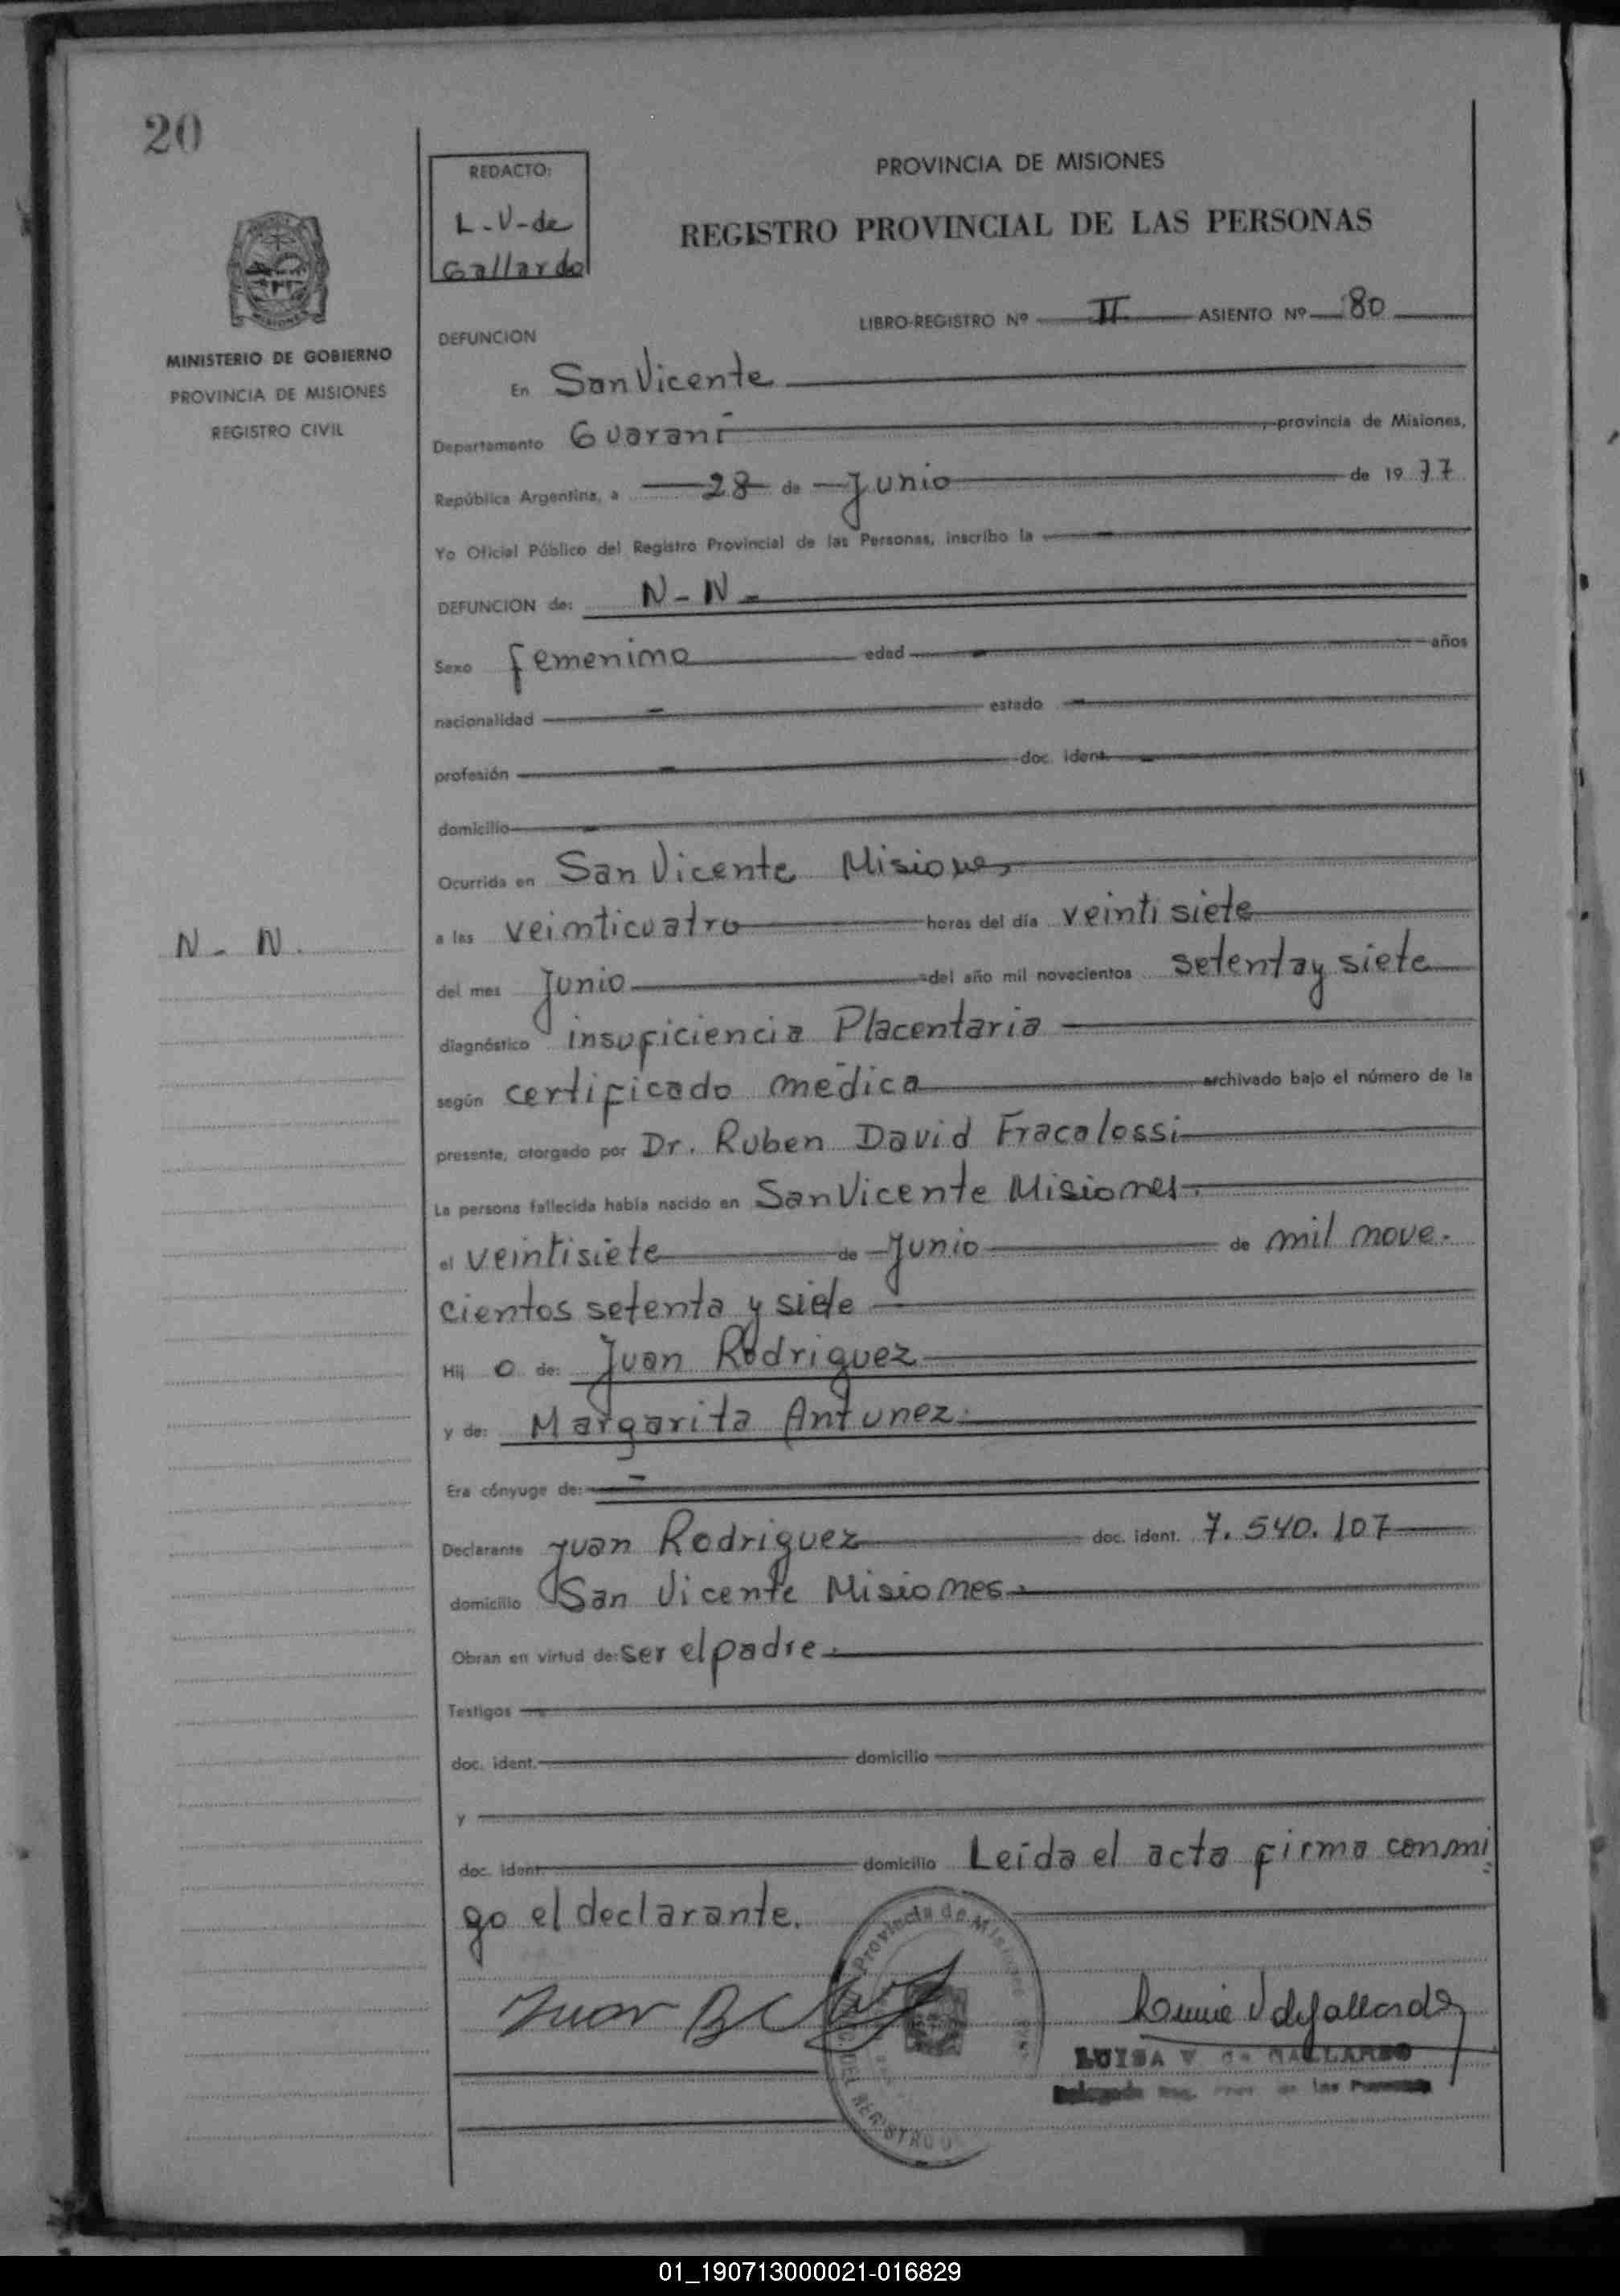 20
REDACTO:
L-V-de
Gallardo
PROVINCIA DE MISIONES
REGISTRO PROVINCIAL DE LAS PERSONAS
LIBRO-REGISTRO Nº II ASIENTO Nº 80
MINISTERIO DE GOBIERNO
PROVINCIA DE MISIONES
REGISTRO CIVIL
DEFUNCION
En San Vicente
Departamento Guaraní, provincia de Misiones,
República Argentina, a 28 de Junio de 1977
Yo Oficial Público del Registro Provincial de las Personas, inscribo la
DEFUNCION de: N-N-
Sexo femenimo edad años
nacionalidad estado
profesión doc. ident.
domicilio
Ocurrida en San Vicente Misiones
N-N.
a las veimticuatro horas del día veintisiete
del mes Junio del año mil novecientos setenta y siete
diagnóstico insuficiencia Placentaria
según certificado médica archivado bajo el número de la
presente, otorgado por Dr. Ruben David Fracalossi
La persona fallecida había nacido en San Vicente Misiones.
el veintisiete de Junio de mil nove-
cientos setenta y siete
Hij o de: Juan Rodriguez
y de: Margarita Antunez.
Era cónyuge de: -
Declarante Juan Rodriguez doc. ident. 7.540.107
domicilio San Vicente Misiones.
Obran en virtud de: ser el padre.
Testigos
doc. ident. domicilio
y
doc. ident. domicilio Leída el acta firma conmi
go el declarante.
Provincia de Misiones
DEL REGISTRO
Juan
LUISA V. de GALLARDO
Delegada Reg. Prov. de las Personas
01_190713000021-016829